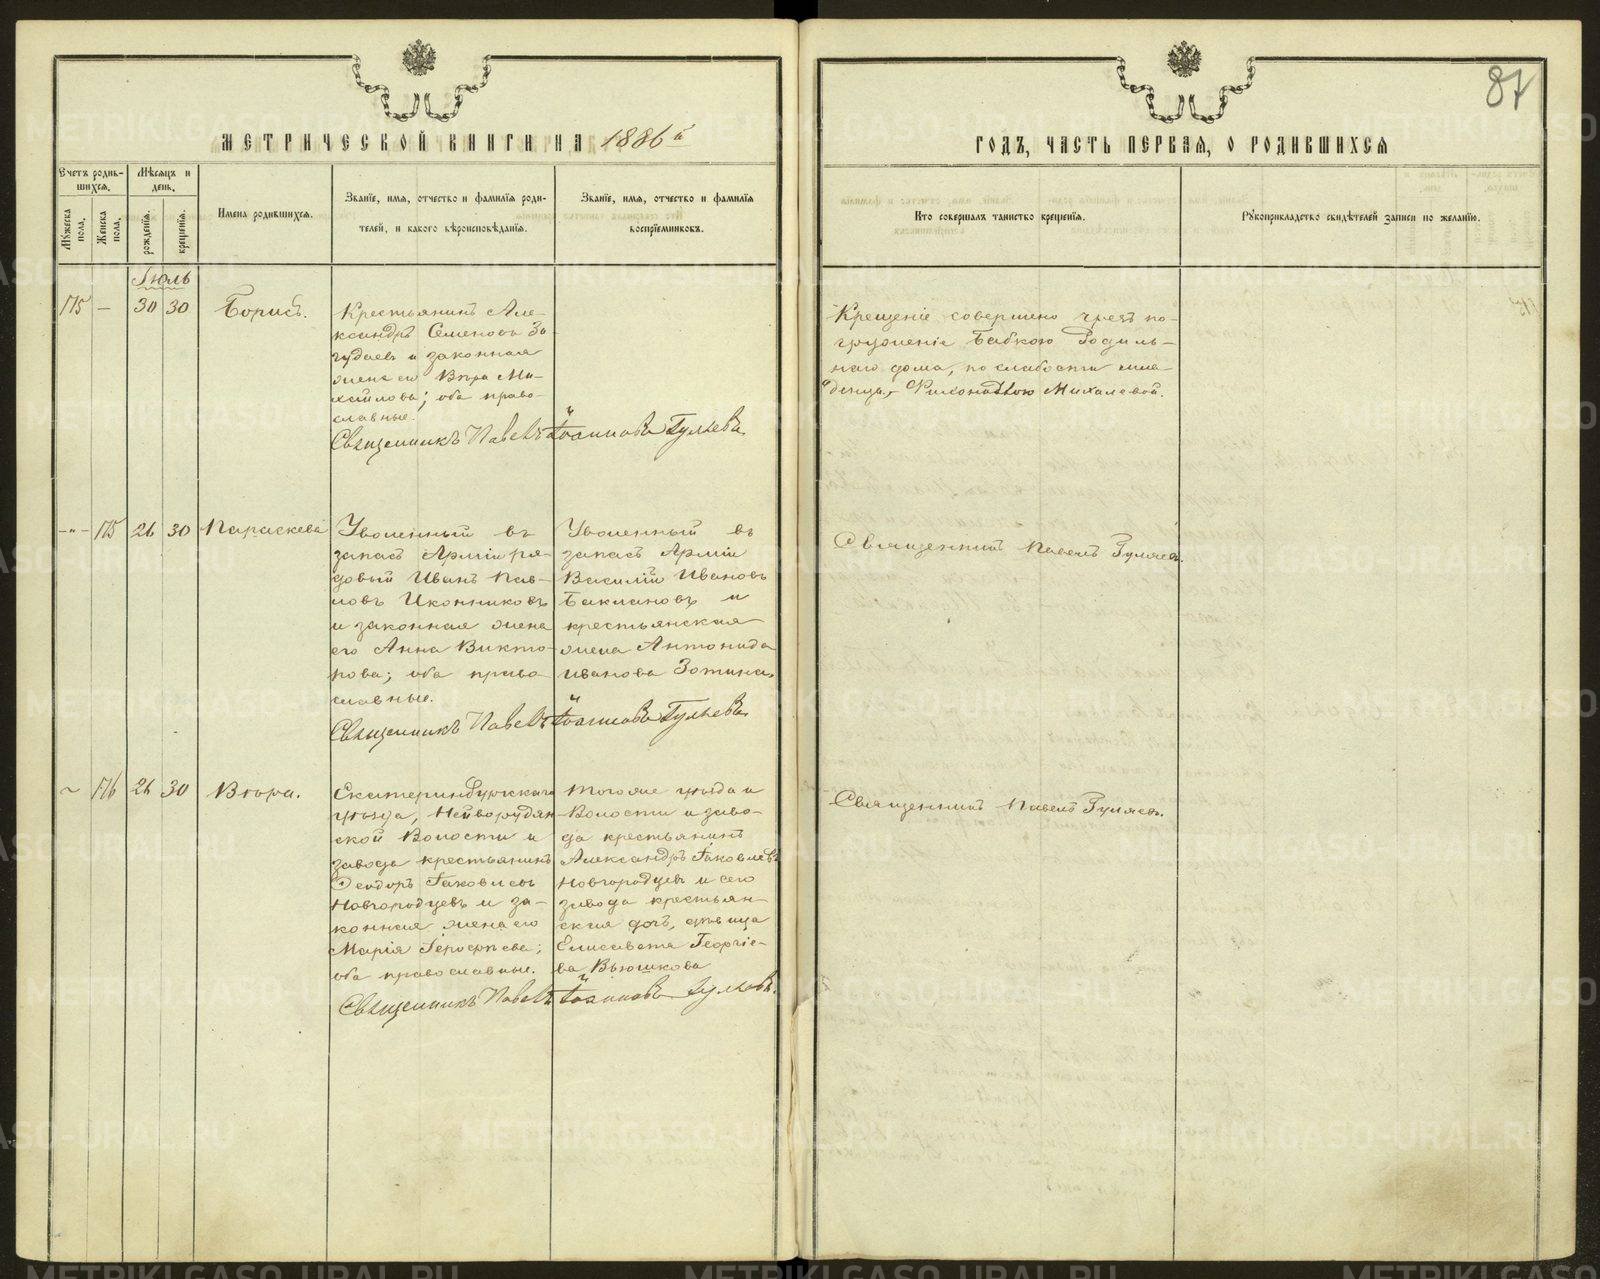 87
МЕТРИЧЕСКОЙ КНИГИ НА 1886й
ГОДЪ, ЧАСТЬ ПЕРВАЯ, О РОДИВШИХСЯ
Счетъ родив-
шихся.
Мужеска
пола.
Женска
пола.
Мѣсяцъ и
день.
рожденія.
крещенія.
Имена родившихся.
Званіе, имя, отчество и фамилія роди-
телей, и какого вѣроисповѣданія.
Званіе, имя, отчество и фамилія
воспріемниковъ.
Кто совершалъ таинство крещенія.
Рукоприкладство свидѣтелей записи по желанію.
Іюль
175 — 30 30 Борисъ.
Крестьянинъ Але-
ксандръ Семеновъ
и законная
жена его Вѣра Ми-
хайлова; оба право-
славные.
Священникъ Павелъ Іоанновъ Гуляевъ
Крещеніе совершено чрезъ по-
груженіе Бабкою Родиль-
наго дома, по слабости мла-
денца, Михалевой.
-"- 175 26 30 Параскева
Уволенный въ
запасъ Арміи ря-
довый Иванъ Пав-
ловъ Иконниковъ
и законная жена
его Анна Викто-
рова; оба право-
славные.
Уволенный въ
запасъ Арміи
Василій Ивановъ
Баклановъ и
крестьянская
жена Антонида
Иванова Зотина.
Священникъ Павелъ Іоанновъ Гуляевъ
Священникъ Павелъ Гуляевъ.
~ 176 26 30 Вѣра.
Екатеринбургскаго
уѣзда, Нейворудян
ской Волости и
завода крестьянинъ
Ѳеодоръ Яковлевъ
Новгородцевъ и за-
конная жена его
Марія Іерофѣева;
оба православные.
Того же уѣзда и
Волости и заво-
да крестьянинъ
Александръ Яковлевъ
Новгородцевъ и сего
завода крестьян-
ская дочь, дѣвица
Елисавета Георгіе-
ва Вьюшкова
Священникъ Павелъ Іоанновъ Гуляевъ.
Священникъ Павелъ Гуляевъ.
METRIKI.GASO-URAL.RU